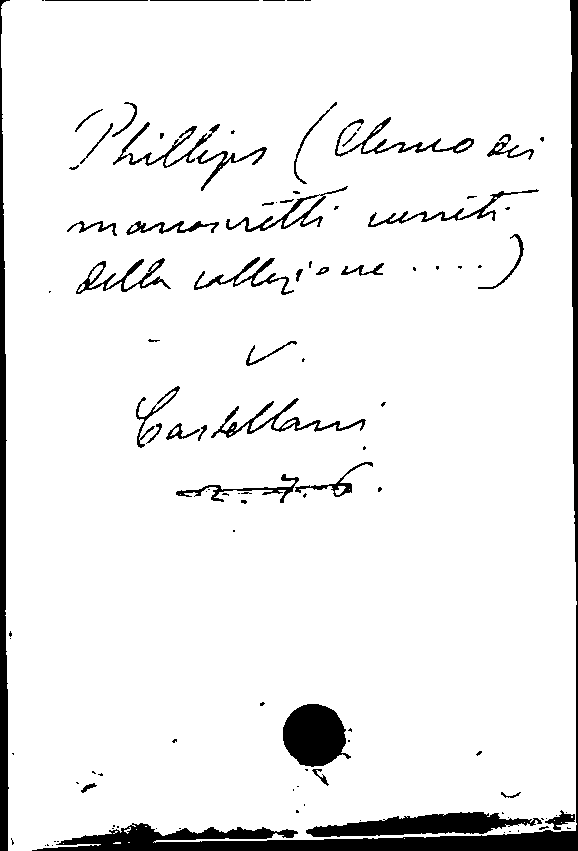 Phillips (Elenco dei
manoscritti veneti
della collezione ....)
v.
Castellani
2. 7. 6.